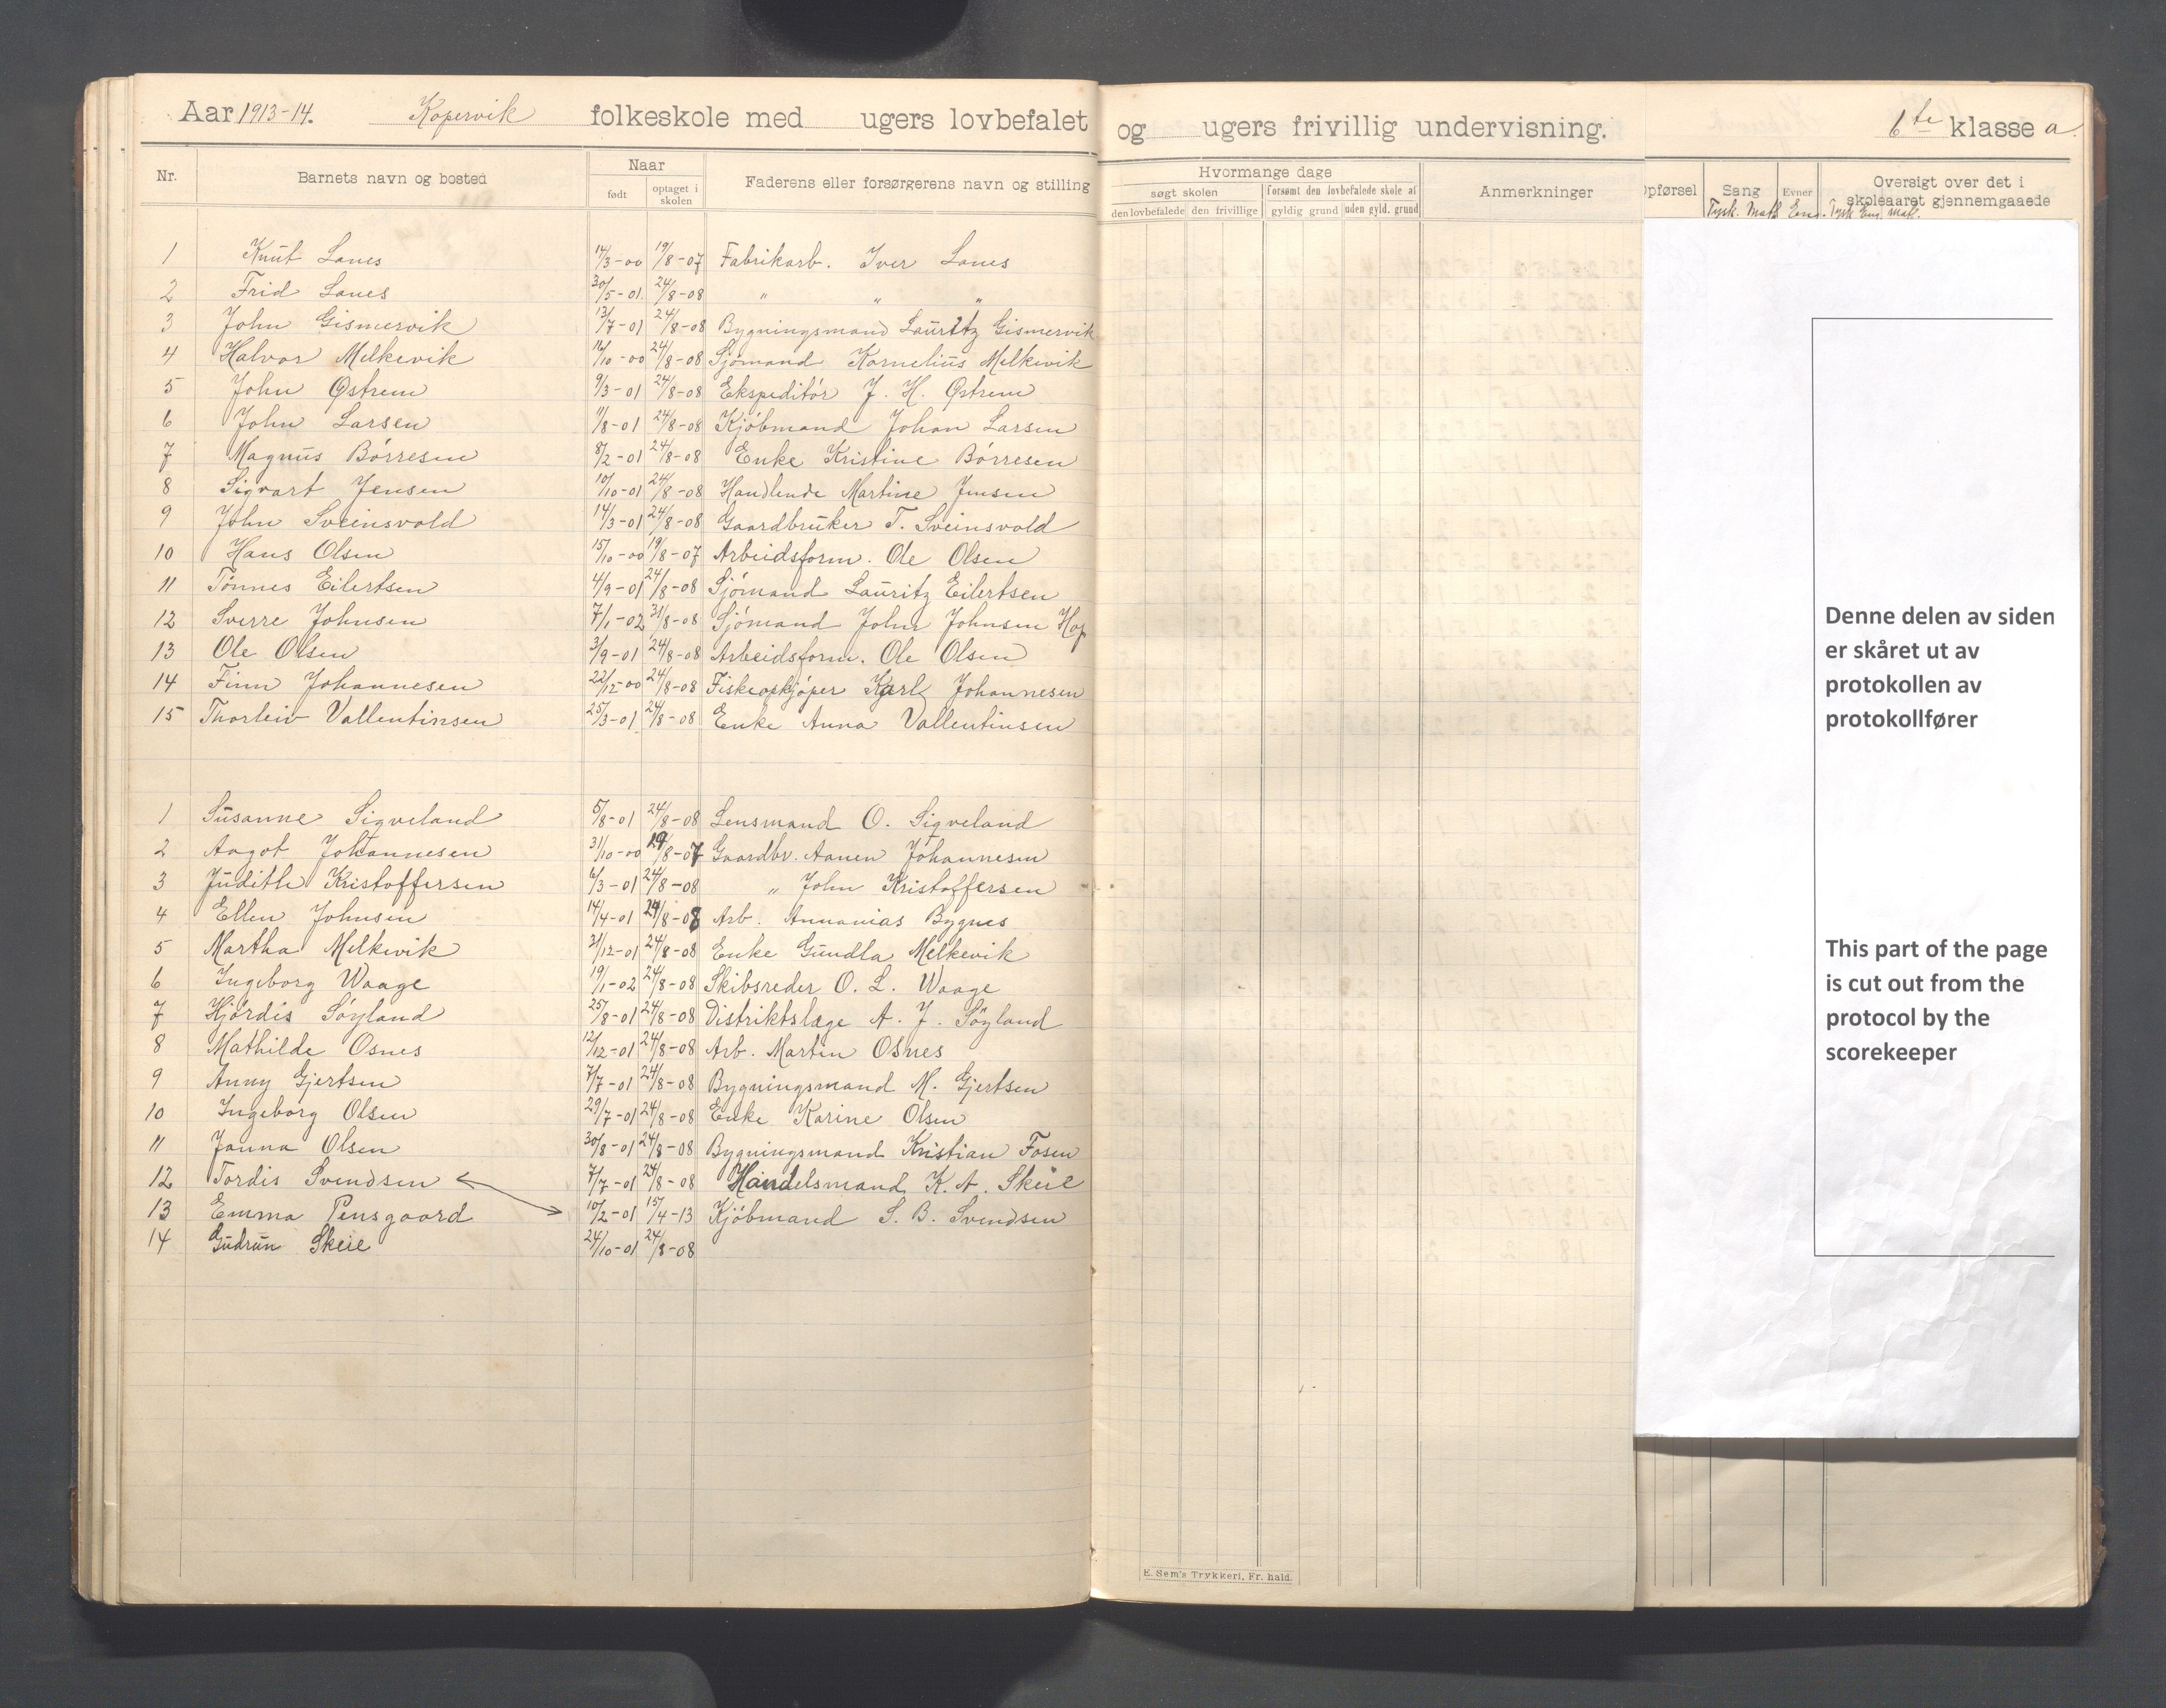 Aar 1913-14. Kopervik folkeskole med ugers lovbefalet og ugers frivillig undervisning. 6te klasse a.
Nr. Barnets navn og bosted Naar født optaget i skolen Faderens eller forsørgerens navn og stilling
Hvormange dage
søgt skolen forsømt den lovbefalede skole af
den lovbefalede den frivillige gyldig grund uden gyld. grund
Anmerkninger
Opførsel Sang Evner Oversigt over det i skoleaaret gjennemgaaede
Tysk. Math Eng. Tysk Eng. Mat.
1 Knut Lanes 14/3-00 19/8-07 Fabrikarb. Iver Lanes
2 Frid Lanes 30/5-01 24/8-08 " " "
3 John Gismervik 13/7-01 24/8-08 Bygningsmand Lauritz Gismervik
4 Halvor Melkevik 16/10-00 24/8-08 Sjömand Kornelius Melkevik
5 John Østrem 9/3-01 24/8-08 Ekspeditör J. H. Østrem
6 John Larsen 11/8-01 24/8-08 Kjöbmand Johan Larsen
7 Magnus Börresen 8/2-01 24/8-08 Enke Kristine Börresen
8 Sigvart Jensen 10/10-01 24/8-08 Handlende Martine Jensen
9 John Sveinsvold 14/3-01 24/8-08 Gaardbruker T. Sveinsvold
10 Hans Olsen 15/10-00 19/8-07 Arbeidsform. Ole Olsen
11 Tönnes Eilertsen 4/9-01 24/8-08 Sjömand Lauritz Eilertsen
12 Sverre Johnsen 7/1-02 31/8-08 Sjömand John Johnsen Hop
13 Ole Olsen 3/9-01 24/8-08 Arbeidsform. Ole Olsen
14 Finn Johannesen 22/12-00 24/8-08 Fiskeopkjöper Karl Johannesen
15 Thorleiv Vallentinsen 25/3-01 24/8-08 Enke Anna Vallentinsen
1 Susanne Sigveland 5/8-01 24/8-08 Lensmand O. Sigveland
2 Aagot Johannesen 31/10-00 19/8-07 Gaardbr. Aanen Johannesen
3 Judith Kristoffersen 6/3-01 24/8-08 " John Kristoffersen
4 Ellen Johnsen 14/4-01 24/8-08 Arb. Annanias Bygnes
5 Martha Melkevik 31/12-01 24/8-08 Enke Gundla Melkevik
6 Ingeborg Waage 19/1-02 24/8-08 Skibsreder O. L. Waage
7 Hjördis Söyland 25/8-01 24/8-08 Distriktslæge A. J. Söyland
8 Mathilde Osnes 12/12-01 24/8-08 Arb. Martin Osnes
9 Anny Gjertsen 7/7-01 24/8-08 Bygningsmand M. Gjertsen
10 Ingeborg Olsen 29/7-01 24/8-08 Enke Karine Olsen
11 Janna Olsen 30/8-01 24/8-08 Bygningsmand Kristian Fosen
12 Tordis Svendsen 7/7-01 24/8-08 Handelsmand K. A. Skeie
13 Emma Pensgaard 10/2-01 15/4-13 Kjöbmand S. B. Svendsen
14 Gudrun Skeie 24/10-01 24/8-08
E. Sem's Trykkeri, Fr. hald.
Denne delen av siden
er skåret ut av
protokollen av
protokollfører
This part of the page
is cut out from the
protocol by the
scorekeeper